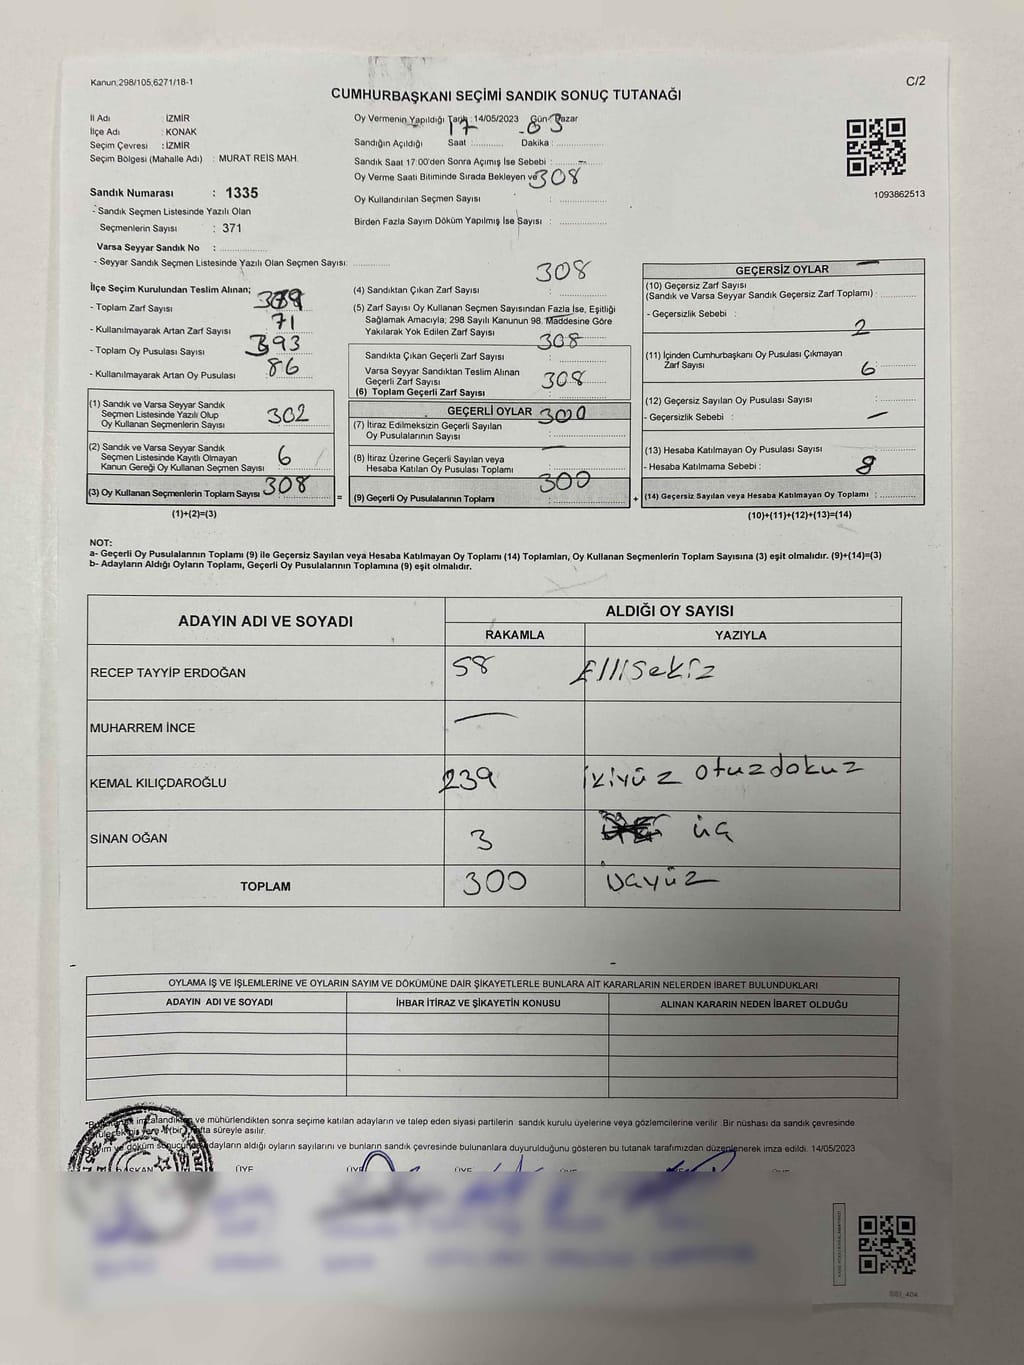 Kanun;298/105,6271/18-1
C/2
CUMHURBAŞKANI SEÇİMİ SANDIK SONUÇ TUTANAĞI
İl Adı : İZMİR
İlçe Adı : KONAK
Seçim Çevresi : İZMİR
Seçim Bölgesi (Mahalle Adı) : MURAT REİS MAH.
Sandık Numarası : 1335
- Sandık Seçmen Listesinde Yazılı Olan
Seçmenlerin Sayısı : 371
Varsa Seyyar Sandık No :
- Seyyar Sandık Seçmen Listesinde Yazılı Olan Seçmen Sayısı:
Oy Vermenin Yapıldığı Tarih :14/05/2023 Gün :Pazar
Sandığın Açıldığı Saat : 17 Dakika : 03
Sandık Saat 17:00'den Sonra Açımış İse Sebebi : -
Oy Verme Saati Bitiminde Sırada Bekleyen ve 308
Oy Kullandırılan Seçmen Sayısı :
Birden Fazla Sayım Döküm Yapılmış İse Sayısı :
1093862513
İlçe Seçim Kurulundan Teslim Alınan;
- Toplam Zarf Sayısı
- Kullanılmayarak Artan Zarf Sayısı 71
- Toplam Oy Pusulası Sayısı 393
- Kullanılmayarak Artan Oy Pusulası 86
(1) Sandık ve Varsa Seyyar Sandık
Seçmen Listesinde Yazılı Olup
Oy Kullanan Seçmenlerin Sayısı 302
(2) Sandık ve Varsa Seyyar Sandık
Seçmen Listesinde Kayıtlı Olmayan
Kanun Gereği Oy Kullanan Seçmen Sayısı 6
(3) Oy Kullanan Seçmenlerin Toplam Sayısı : 308
(1)+(2)=(3)
=
308
(4) Sandıktan Çıkan Zarf Sayısı :
(5) Zarf Sayısı Oy Kullanan Seçmen Sayısından Fazla İse, Eşitliği
Sağlamak Amacıyla; 298 Sayılı Kanunun 98. Maddesine Göre
Yakılarak Yok Edilen Zarf Sayısı
308
Sandıkta Çıkan Geçerli Zarf Sayısı :
Varsa Seyyar Sandıktan Teslim Alınan
Geçerli Zarf Sayısı 308
(6) Toplam Geçerli Zarf Sayısı
GEÇERLİ OYLAR 300
(7) İtiraz Edilmeksizin Geçerli Sayılan
Oy Pusulalarının Sayısı :
(8) İtiraz Üzerine Geçerli Sayılan veya —
Hesaba Katılan Oy Pusulası Toplamı :
300
(9) Geçerli Oy Pusulalarının Toplamı :
+
GEÇERSİZ OYLAR —
(10) Geçersiz Zarf Sayısı
(Sandık ve Varsa Seyyar Sandık Geçersiz Zarf Toplamı) :
- Geçersizlik Sebebi :
2
(11) İçinden Cumhurbaşkanı Oy Pusulası Çıkmayan
Zarf Sayısı 6
(12) Geçersiz Sayılan Oy Pusulası Sayısı :
- Geçersizlik Sebebi : —
(13) Hesaba Katılmayan Oy Pusulası Sayısı :
- Hesaba Katılmama Sebebi : 8
(14) Geçersiz Sayılan veya Hesaba Katılmayan Oy Toplamı :
(10)+(11)+(12)+(13)=(14)
NOT:
a- Geçerli Oy Pusulalarının Toplamı (9) ile Geçersiz Sayılan veya Hesaba Katılmayan Oy Toplamı (14) Toplamları, Oy Kullanan Seçmenlerin Toplam Sayısına (3) eşit olmalıdır. (9)+(14)=(3)
b- Adayların Aldığı Oyların Toplamı, Geçerli Oy Pusulalarının Toplamına (9) eşit olmalıdır.
ADAYIN ADI VE SOYADI
ALDIĞI OY SAYISI
RAKAMLA YAZIYLA
RECEP TAYYİP ERDOĞAN 58 Ellisekiz
MUHARREM İNCE —
KEMAL KILIÇDAROĞLU 239 ikiyüz otuzdokuz
SİNAN OĞAN 3 üç
TOPLAM 300 üçyüz
OYLAMA İŞ VE İŞLEMLERİNE VE OYLARIN SAYIM VE DÖKÜMÜNE DAİR ŞİKAYETLERLE BUNLARA AİT KARARLARIN NELERDEN İBARET BULUNDUKLARI
ADAYIN ADI VE SOYADI İHBAR İTİRAZ VE ŞİKAYETİN KONUSU ALINAN KARARIN NEDEN İBARET OLDUĞU
ve mühürlendikten sonra seçime katılan adayların ve talep eden siyasi partilerin sandık kurulu üyelerine veya gözlemcilerine verilir. Bir nüshası da sandık çevresinde
hafta süreyle asılır.
adayların aldığı oyların sayılarını ve bunların sandık çevresinde bulunanlara duyurulduğunu gösteren bu tutanak tarafımızdan düzenlenerek imza edildi. 14/05/2023
BAŞKAN ÜYE ÜYE ÜYE ÜYE ÜYE